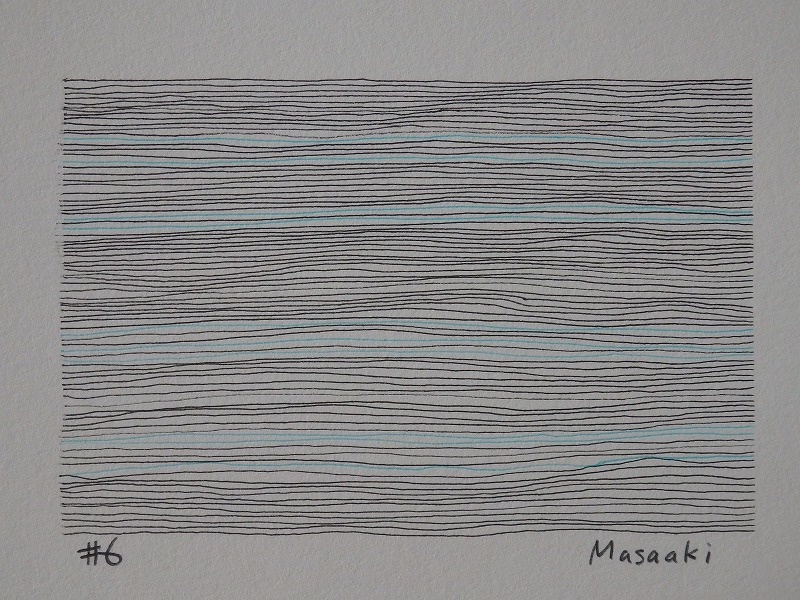 #6
Masaaki